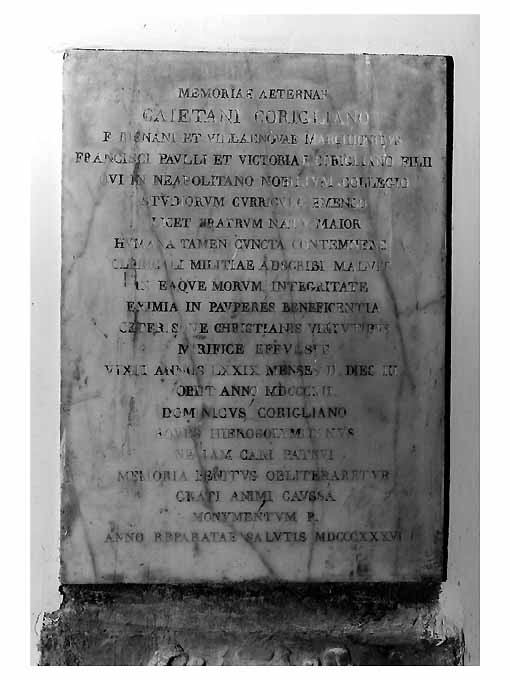 MEMORIAE AETERNAE
CAIETANI CORIGLIANO
ET
FRANCISCI PAVLLI ET VICTORIAE CORIGLIANO FILII
QVI IN NEAPOLITANO NOBILIVM COLLEGIO
STVDIORVM CVRRICVLO EMENSO
LICET FRATRVM NATV MAIOR
HVMANA TAMEN CVNCTA CONTEMNENS
CLERICALI MILITIAE ADSCRIBI MALVIT
IN EAQVE MORVM INTEGRITATE
EXIMIA IN PAVPERES BENEFICENTIA
CETERISQVE CHRISTIANIS VIRTVTIBVS
MIRIFICE EFFVLSIT
VIXIT ANNOS LXXIX MENSES DIES III
OBIIT ANNO
DOMINICVS CORIGLIANO
EQVES HIEROSOLYMITANVS
NE TAM CARI PATRVI
MEMORIA PENITVS OBLITERARETVR
GRATI ANIMI CAVSSA
MONVMENTVM P.
ANNO REPARATAE SALVTIS